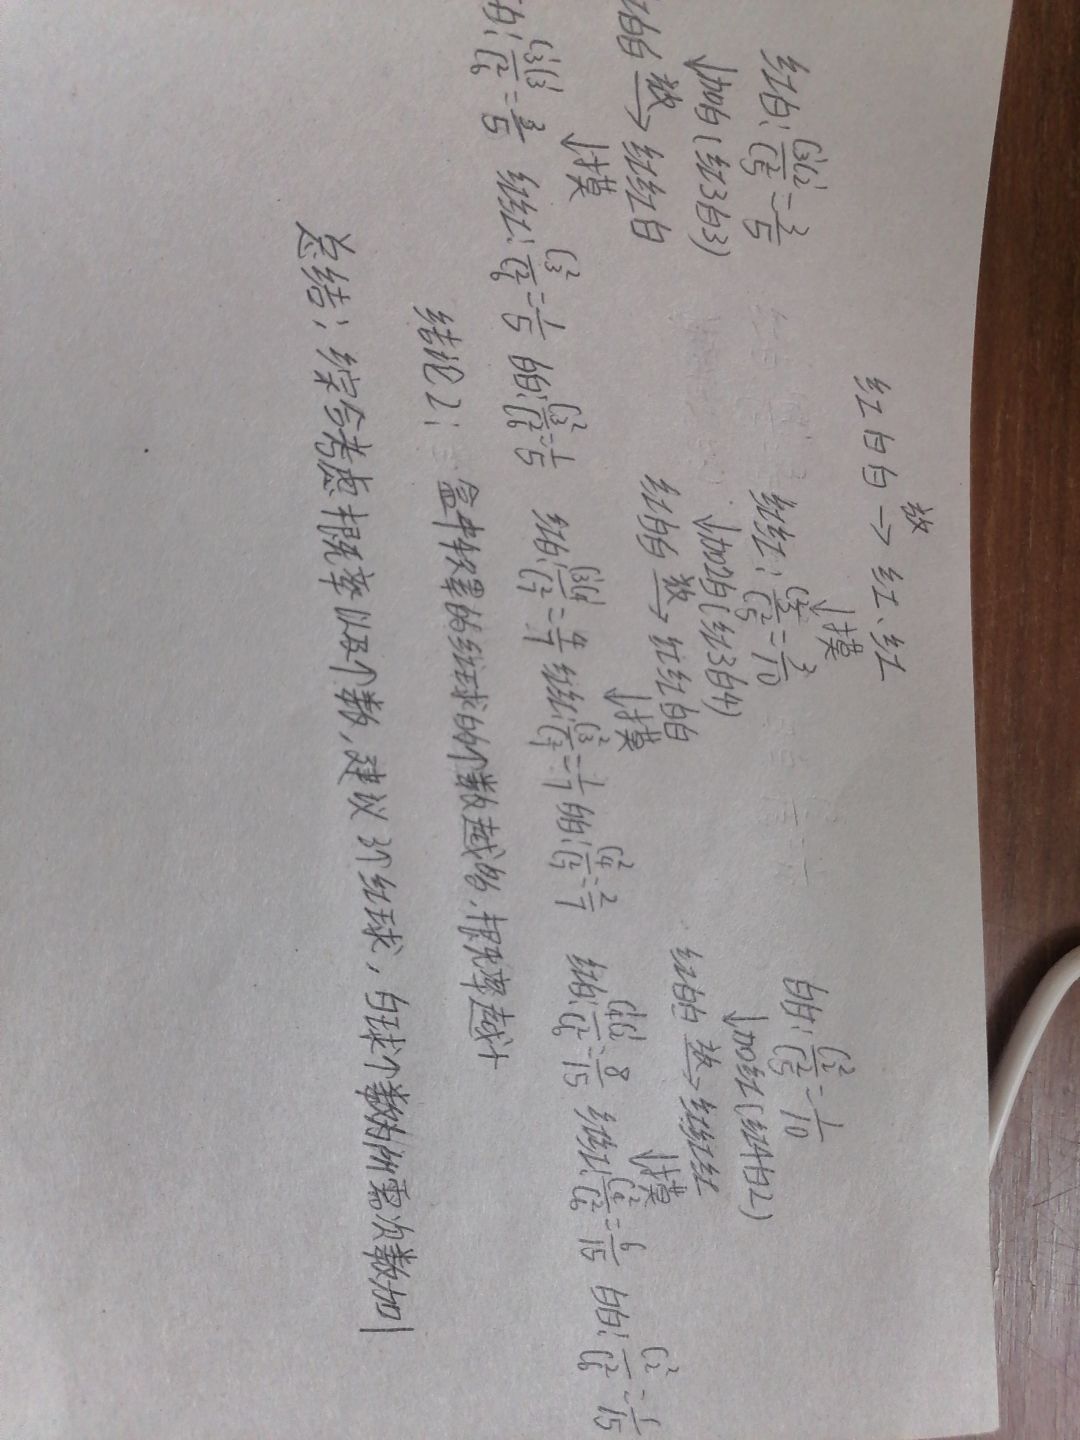 放
红白白→红、红
↓摸
红白：C₃¹C₂¹/C₅²=3/5 红红：C₃²/C₅²=3/10 白白：C₂²/C₅²=1/10
↓加白(红3白3) ↓加2白(红3白4) ↓加红(红4白2)
红白白 放→ 红红白 红白白 放→ 红红白白 红白白 放→ 红红红
↓摸 ↓摸 ↓摸
白：C₃¹C₃¹/C₆²=3/5 红红：C₃²/C₆²=1/5 白白：C₃²/C₆²=1/5 红白：C₃¹C₄¹/C₇²=4/7 红红：C₃²/C₇²=1/7 白白：C₄²/C₇²=2/7 红白：C₄¹C₂¹/C₆²=8/15 红红：C₄²/C₆²=6/15 白白：C₂²/C₆²=1/15
结论2：盒中放置的红球的个数越多，概率越小
总结：综合考虑概率以及个数，建议3个红球，白球个数为所需次数加1